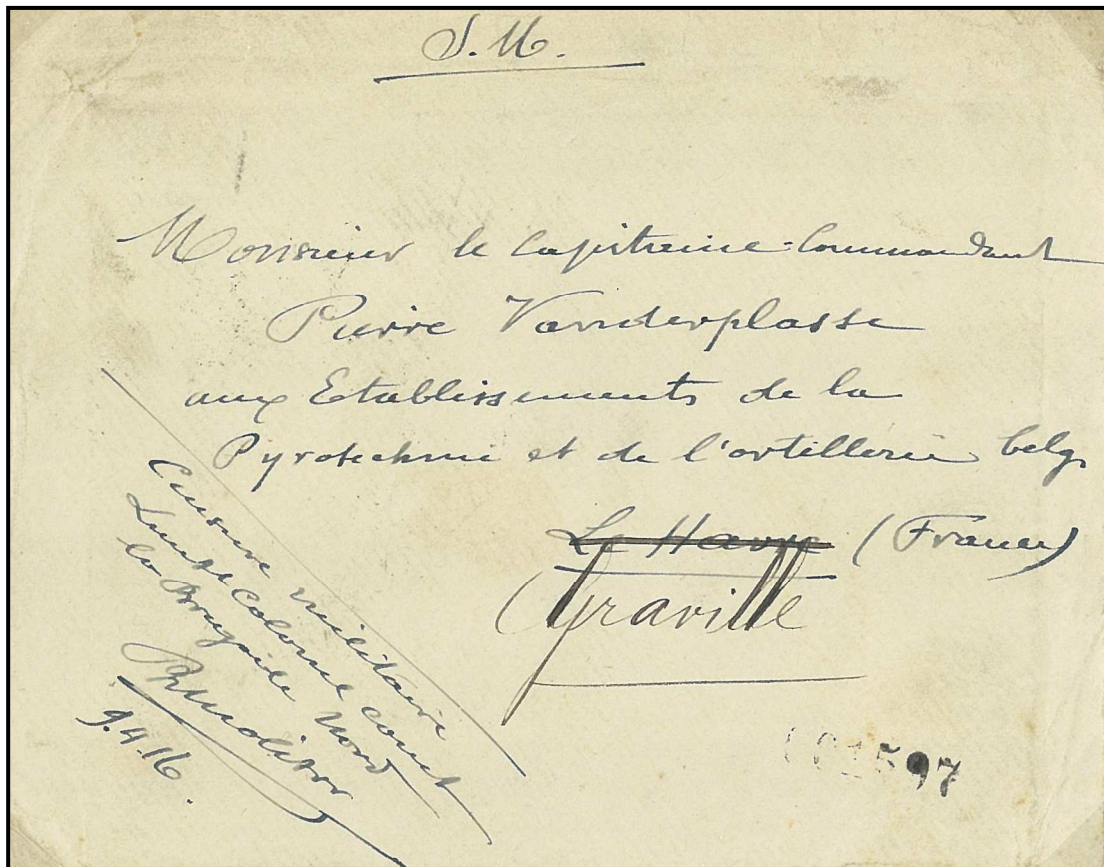 S.M.
Monsieur le Capitaine-Commandant
Pierre Vanderplasse
aux Etablissements de la
Pyrotechnie et de l'artillerie belge
Le Havre (France)
Graville
Censure militaire
Lieut Colonel Comdt
la Brigade Nord
Ph Molitor
9.4.16.
597